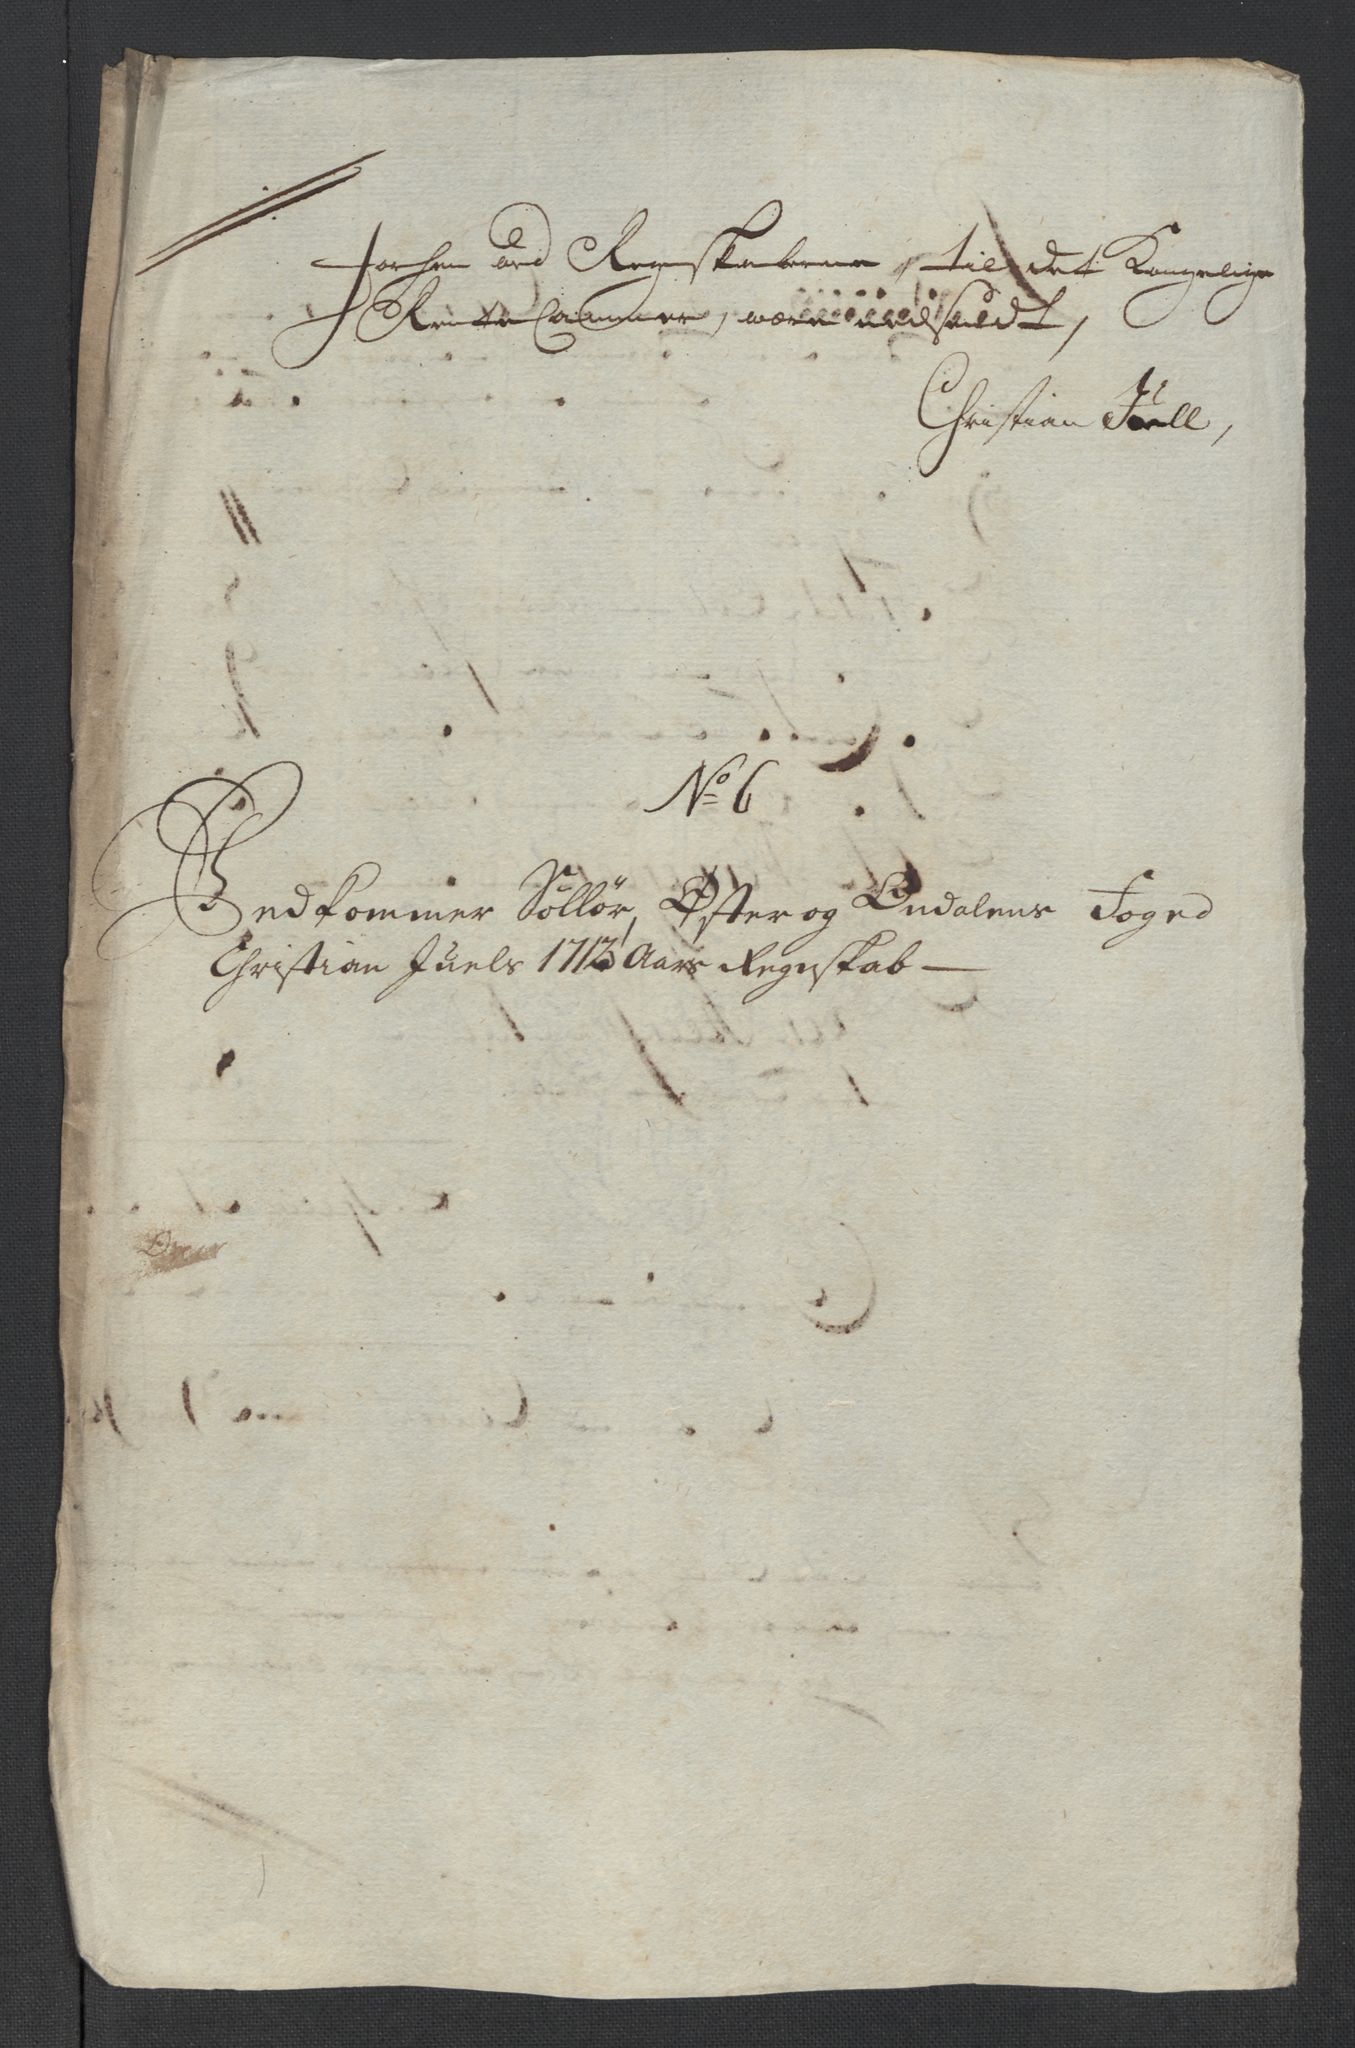 forhen ved Regnskaberne, til det Kongelige
Rente Cammer, være nedsendt,
Christian Juell,
No 6
Vedkommer Sollør, Øster og Oudalens Foged
Christian Juels 1713 Aars Regnskab —